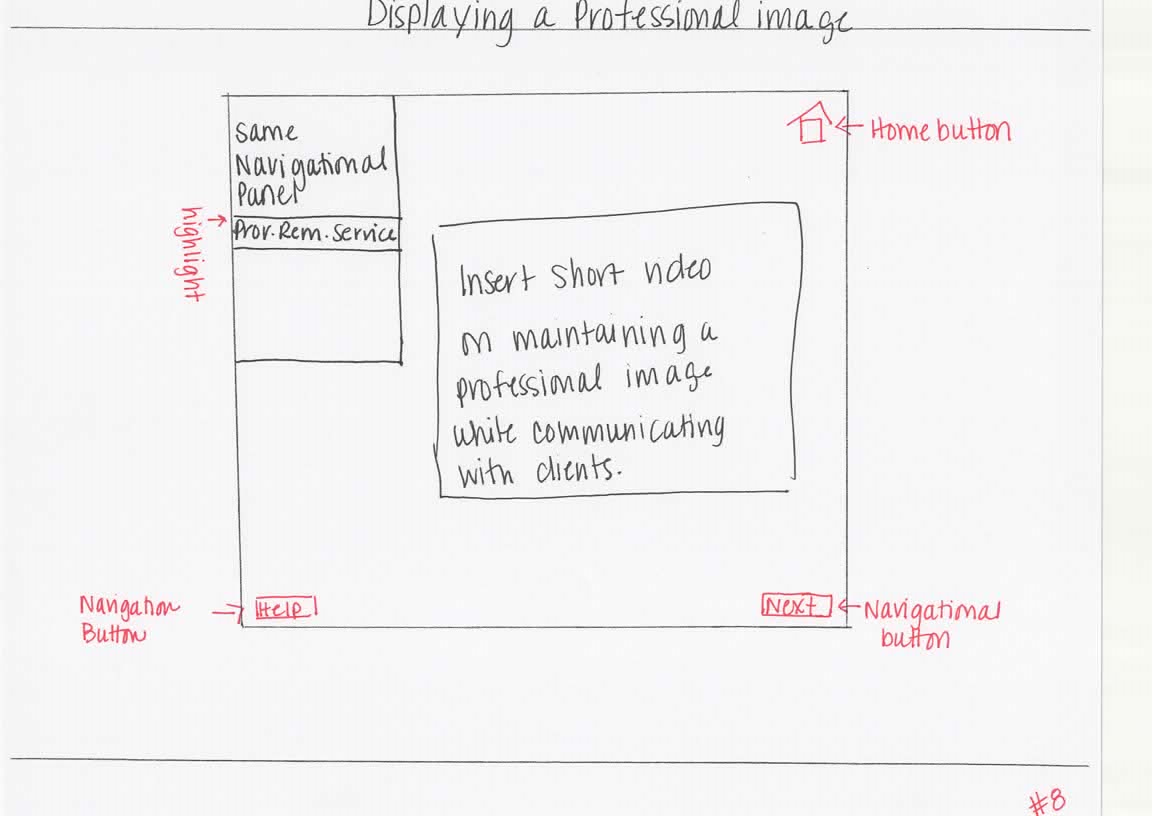 Displaying a Professional image
Same
Navigational
Panel
Prov. Rem. Service
highlight
Home button
Insert short video
on maintaining a
professional image
while communicating
with clients.
Navigation
Button
Help
Next
Navigational
button
#8